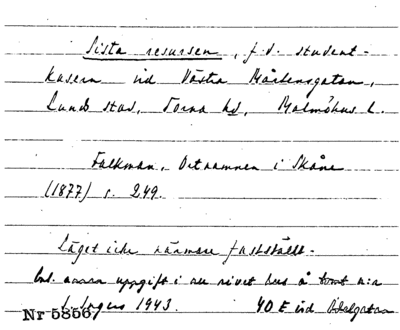 Sista resursen, f.d. student-
kasern vid Västra Mårtensgatan,
Lunds stad, Torna hd, Malmöhus l.
Falkman, Ortnamnen i Skåne
(1877) s. 249.
Läget icke närmare fastställt.
Enl. annan uppgift i nu rivet hus å tomt n:r
1943. 40 E vid Adelgatan
Nr 5856